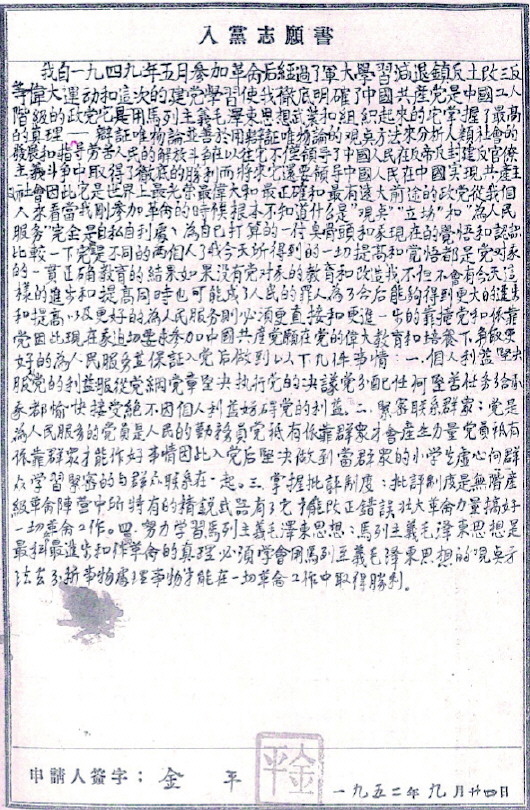 入黨志願書
我自一九四九年五月參加革命后經過了軍大學習減退鎮反土改三反
等偉大運动和這次的建党學習使我徹底明確了中國共產党是中國工人
階級的政党它是用馬列主義毛澤東思想武装和組織起來的它掌握了最高
的真理——辯証唯物論並善於用辯証唯物論的观点方法來分析人類社會的
發展和指导劳苦人民的解放斗争以往它不但領导了中國人民在反帝反封建反官僚
主義斗争中取得了徹底的勝利而將來它還要領导中國人民在中國实現共產主
社會因此它是世界上最光荣最偉大和最正確和最有遠大前途的政党從我個
人來看當我剛參加革命的時候根本不知道什么是“观点”“立場”和“為人民
服务”完全是自私自利處々為自己打算的一付臭骨頭和我現在的覺悟和認識
比較一下党是不同的兩個人了我今天所得到的一切提高和覺悟都是党对我
的一貫正確教育的結果如果沒有党对我的教育和改造我不但不會有今天這
樣的進步和提高同時也可能成了人民的罪人為了今后能夠得到更大的進步
和提高以及更好的為人民服务則必須更直接和更進一步的靠攏党和依靠
党因此現在我迫切要求參加中國共產党願在党的偉大教育和培養下争取更
好的為人民服务並保証入党后做到以下几件事情：一．個人利益堅决
服党的利益服從党綱党章堅决执行党的决議党分配任何堅苦任务給
我都愉快接受絕不因個人利益妨碍党的利益．二．緊密联系群众：党是
為人民服务的党員是人民的勤務員党祇有依靠群众才會產生力量党員祇有
依靠群众才能作好事情因此入党后堅决做到當群众的小学生虚心向群
众学習緊密的与群众联系在一起。三．掌握批評制度：批評制度是無階產
級革命陣营中所特有的精銳武器有了它才能改正錯誤壮大革命力量搞好
一切革命工作。四．努力学習馬列主義毛澤東思想：馬列主義毛澤東思想是
最科最進步和作革命的真理必須学會用馬列主義毛澤東思想的观点方
法去分析事物處理事物才能在一切革命工作中取得勝利。
申請人簽字：金平
金平
一九五二年九月廿四日